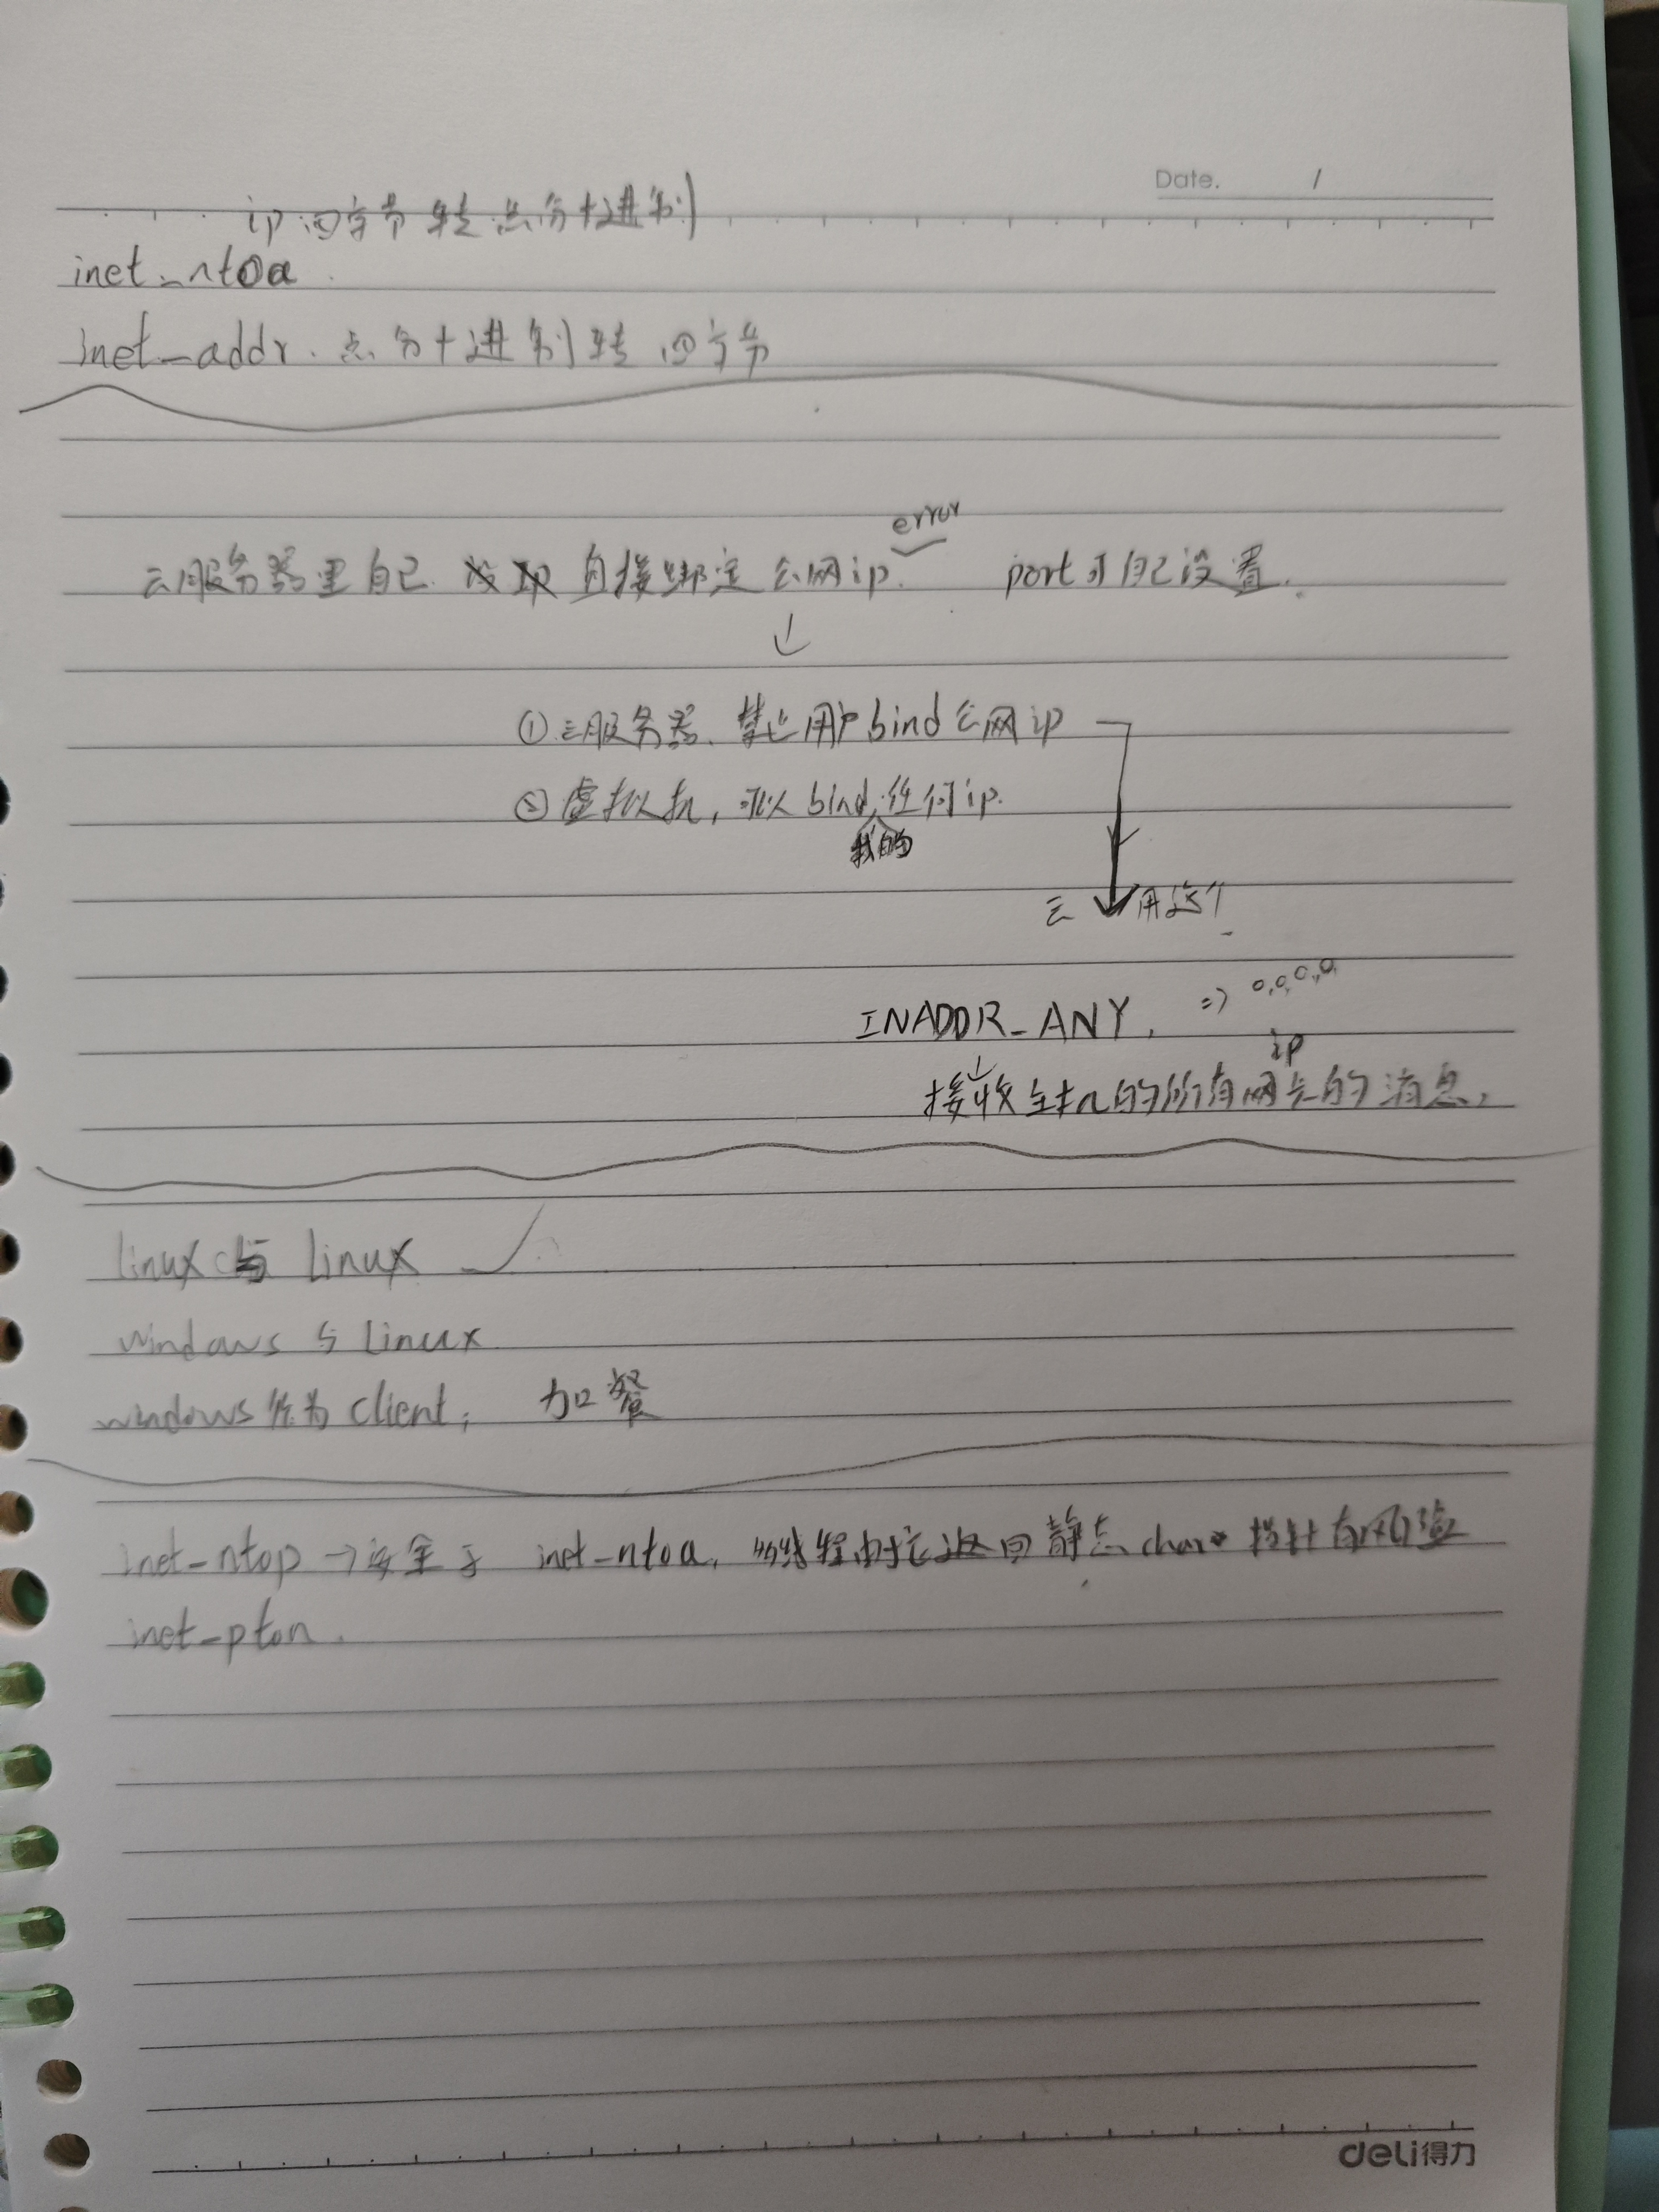 Date. /
ip四字节转点分十进制
inet_ntoa
inet_addr. 点分十进制转四字节
error
云服务器里自己 直接绑定公网ip. port可自己设置.
↓
①云服务器、禁止用户bind公网ip
②虚拟机, 可以bind任何ip.
我的
云 用这个
INADDR_ANY. => 0.0.0.0
ip
接收主机的所有网卡的消息.
linux与 linux ✓
windows 与 linux
windows作为 client; 加餐
inet_ntop → 安全于 inet_ntoa, 线程由于它返回静态char* 指针有风险
inet_pton.
deli得力